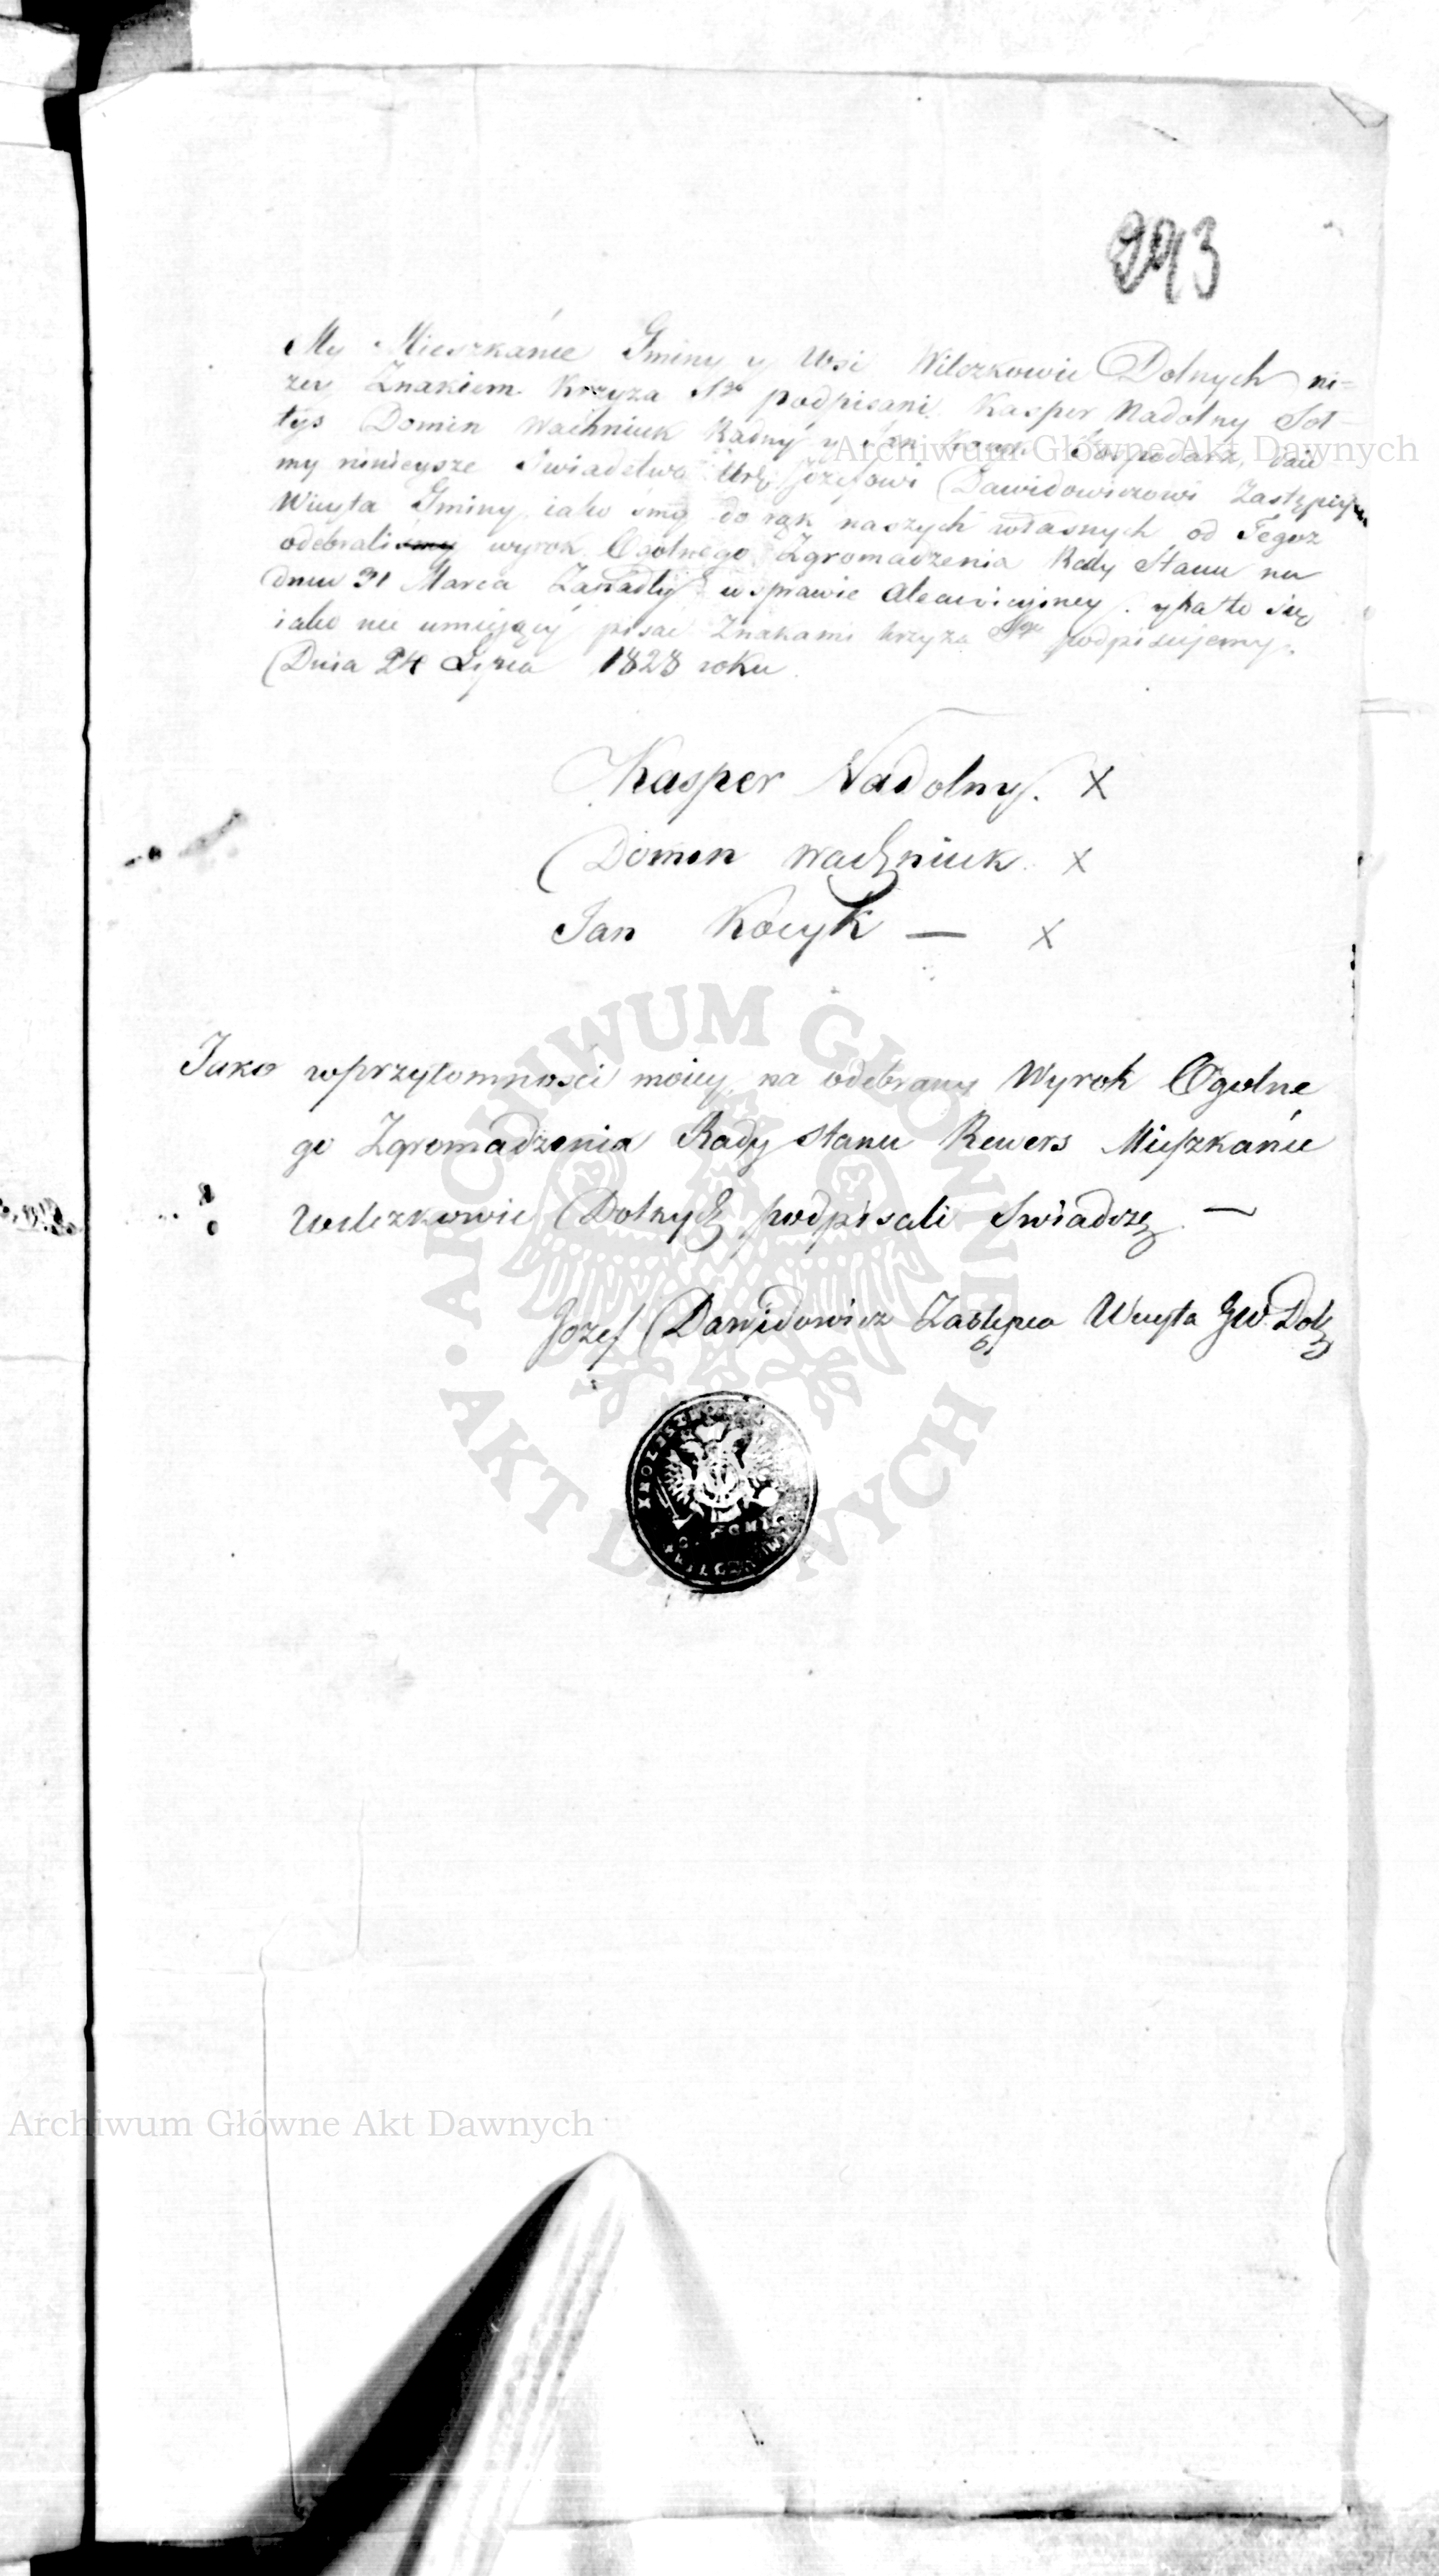 293
My Mieszkańce Gminy y Wsi Wilczkowic Dolnych ni=
zey Znakiem Krzyza podpisani Kasper Nadolny Soł-
tys Domin Wachniuk Radny y Jan Kocyk Gospodarz, daie
my ninieysze Swiadetwo Józefowi Dawidowiczowi Zastępcy
Wuyta Gminy iako smy do rąk naszych własnych od Tegoz
odebrali wyrok Ogolnego Zgromadzenia Rady Stanu na
dniu 31 Marca Zapadły w sprawie y na to się
iako nie umiejący pisać Znakami krzyza podpisujemy.
Dnia 24 Lipca 1828 roku
Kasper Nadolny. X
Domin Wachniuk X
Jan Kocyk — X
Jako w przytomnosci moiey na odebrany Wyrok Ogolne
go Zgromadzenia Rady Stanu Rewers Mieszkańce
Wilczkowic Dolnych podpisali Swiadczę —
Jozef Dawidowicz Zastępca Wuyta GW. Dol
Archiwum Główne Akt Dawnych
ARCHIWUM GŁÓWNE
AKT DAWNYCH
Archiwum Główne Akt Dawnych